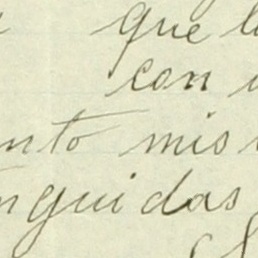 que l
con
nto mis
nguidas